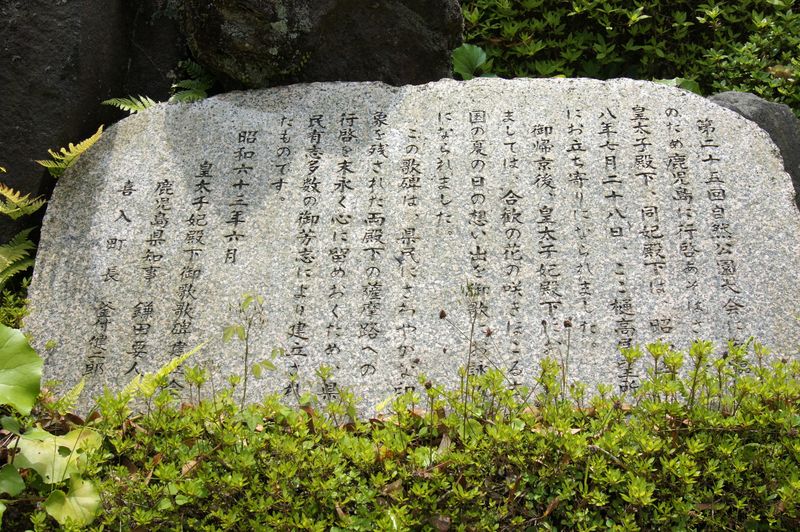 第二十五回自然公園大会に
のため鹿児島に行啓あそばさ
皇太子殿下、同妃殿下は、昭
八年七月二十八日、ここ樋高展望所
にお立ち寄りになられました。
御帰京後、皇太子妃殿下にお
ましては、合歓の花の咲きにこる
国の夏の日の想い出を御歌にお詠
になられました。
この歌碑は、県民にさわやかな印
象を残された両殿下の薩摩路への
行啓を末永く心に留めおくため、県
民有志多数の御芳志により建立され
たものです。
昭和六十三年六月
皇太子妃殿下御歌歌碑建 会
鹿児島県知事 鎌田要人
喜入町長 釜付健二郎